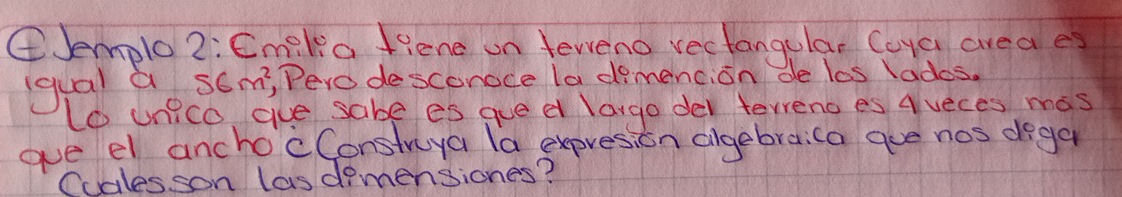 Ejemplo 2: Emilia tiene un terreno rectangular Cuya area es
igual a 56m², Pero desconoce la dimención de los lados.
Lo unico que sabe es que el largo del terreno es 4 veces más
que el ancho ¿Construya la expresión algebraica que nos diga
Cuales son las dimensiones?